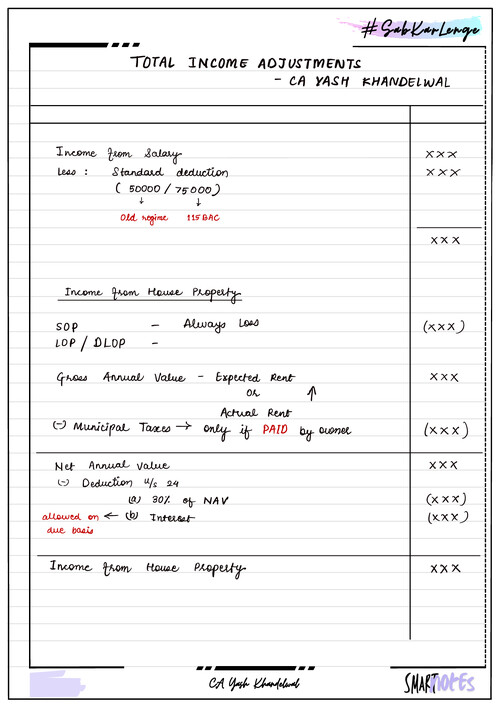 #SabKarLenge
TOTAL INCOME ADJUSTMENTS
- CA YASH KHANDELWAL
Income from Salary xxx
Less : Standard deduction xxx
( 50000 / 75000 )
↓ ↓
Old regime 115BAC
xxx
Income from House Property
SOP - Always Loss (xxx)
LOP / DLOP -
Gross Annual Value - Expected Rent xxx
or ↑
Actual Rent
(-) Municipal Taxes → only if PAID by owner (xxx)
Net Annual Value xxx
(-) Deduction u/s 24
(a) 30% of NAV (xxx)
allowed on ← (b) Interest (xxx)
due basis
Income from House Property xxx
CA Yash Khandelwal
SMARTNOTES